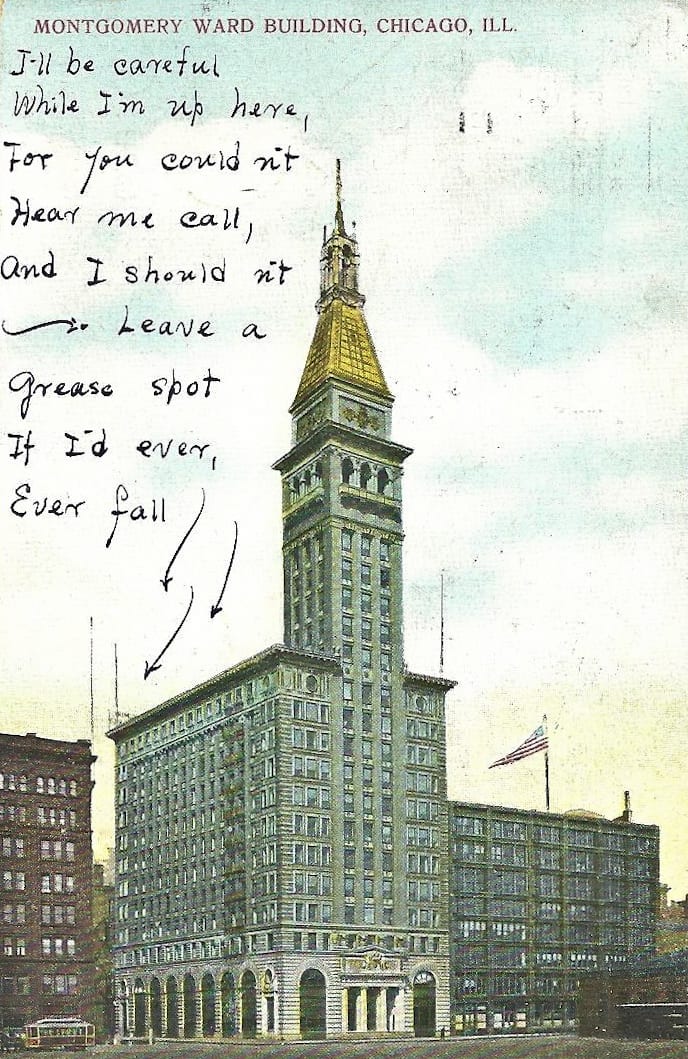 MONTGOMERY WARD BUILDING, CHICAGO, ILL.
I'll be careful
While I'm up here,
For you could n't
Hear me call,
And I should n't
Leave a
Grease spot
If I'd ever,
Ever fall